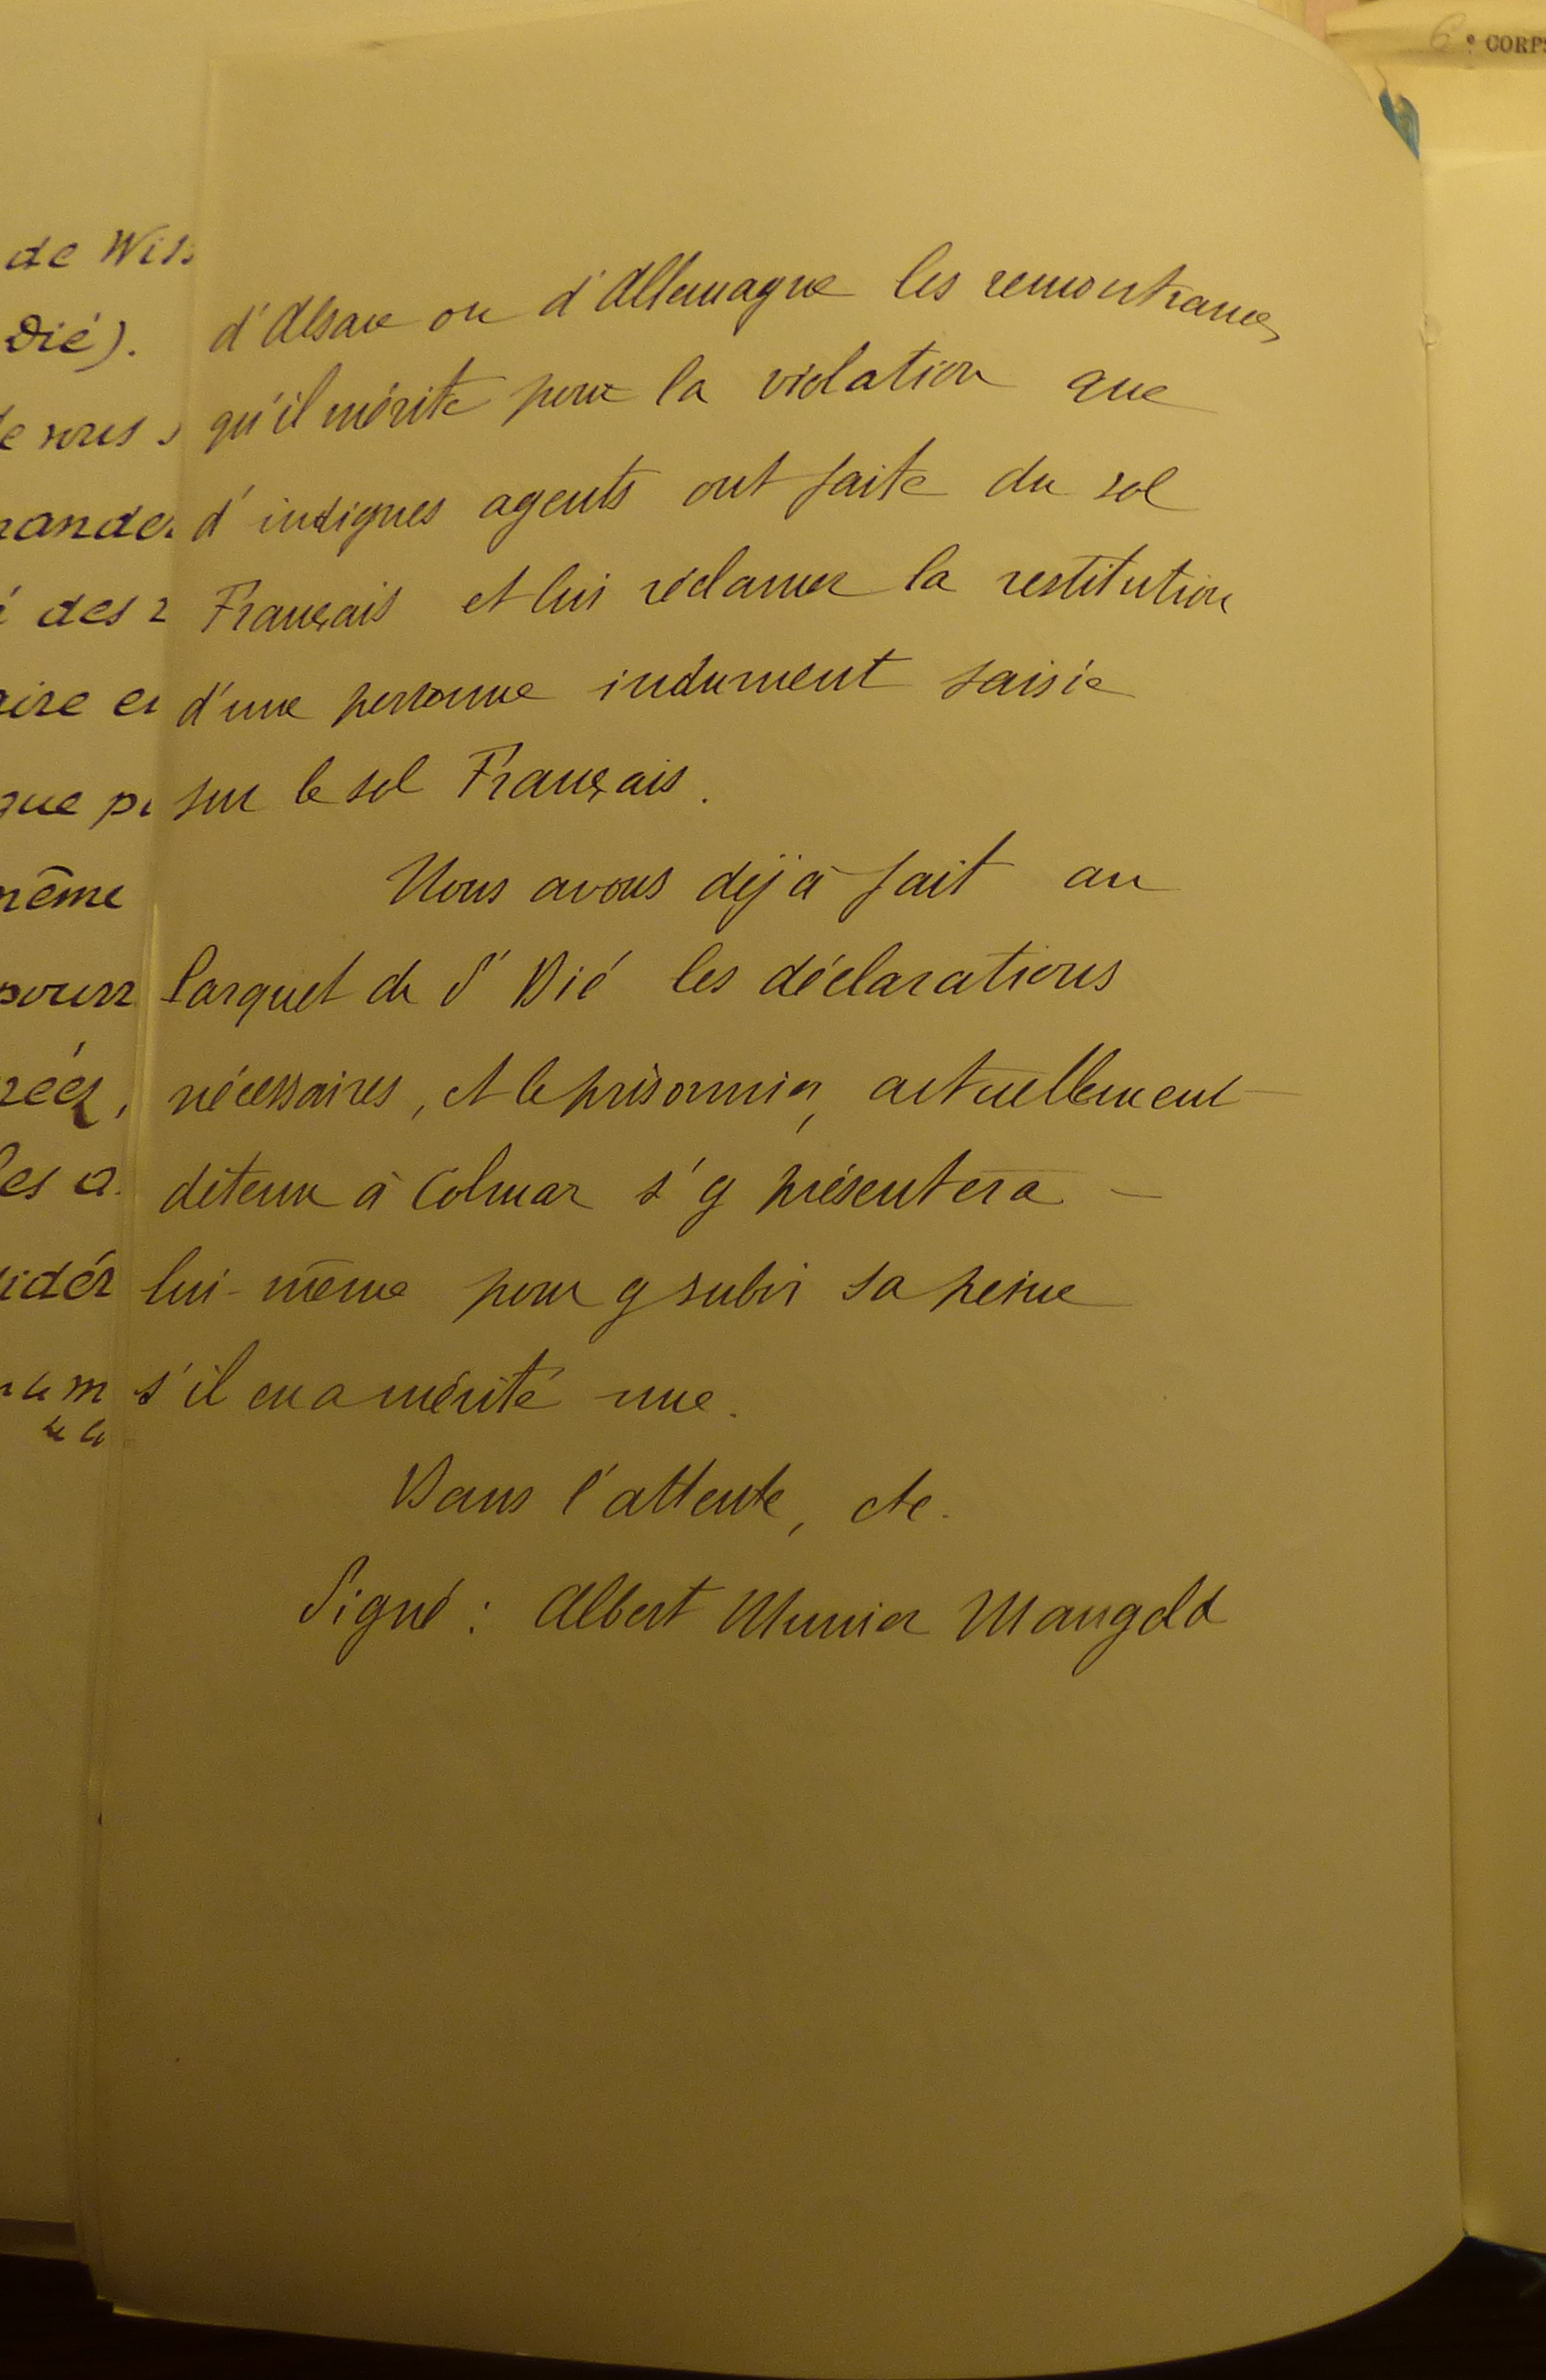 de Wis
Dié).
e nous s
mander
é des r
aire er
que pr
même
pourr
rées,
les a
idér
6e CORPS
d'Alsace ou d'Allemagne les remontrances
qu'il mérite pour la violation que
d'indignes agents ont faite du sol
Français et lui réclamer la restitution
d'une personne indument saisie
sur le sol Français.
Nous avons déjà fait au
Parquet de St Dié les déclarations
nécessaires, et le prisonnier, actuellement
détenu à Colmar s'y présentera –
lui-même pour y subir sa peine
s'il en a mérité une.
Dans l'attente, etc.
Signé : Albert Munier Mangold